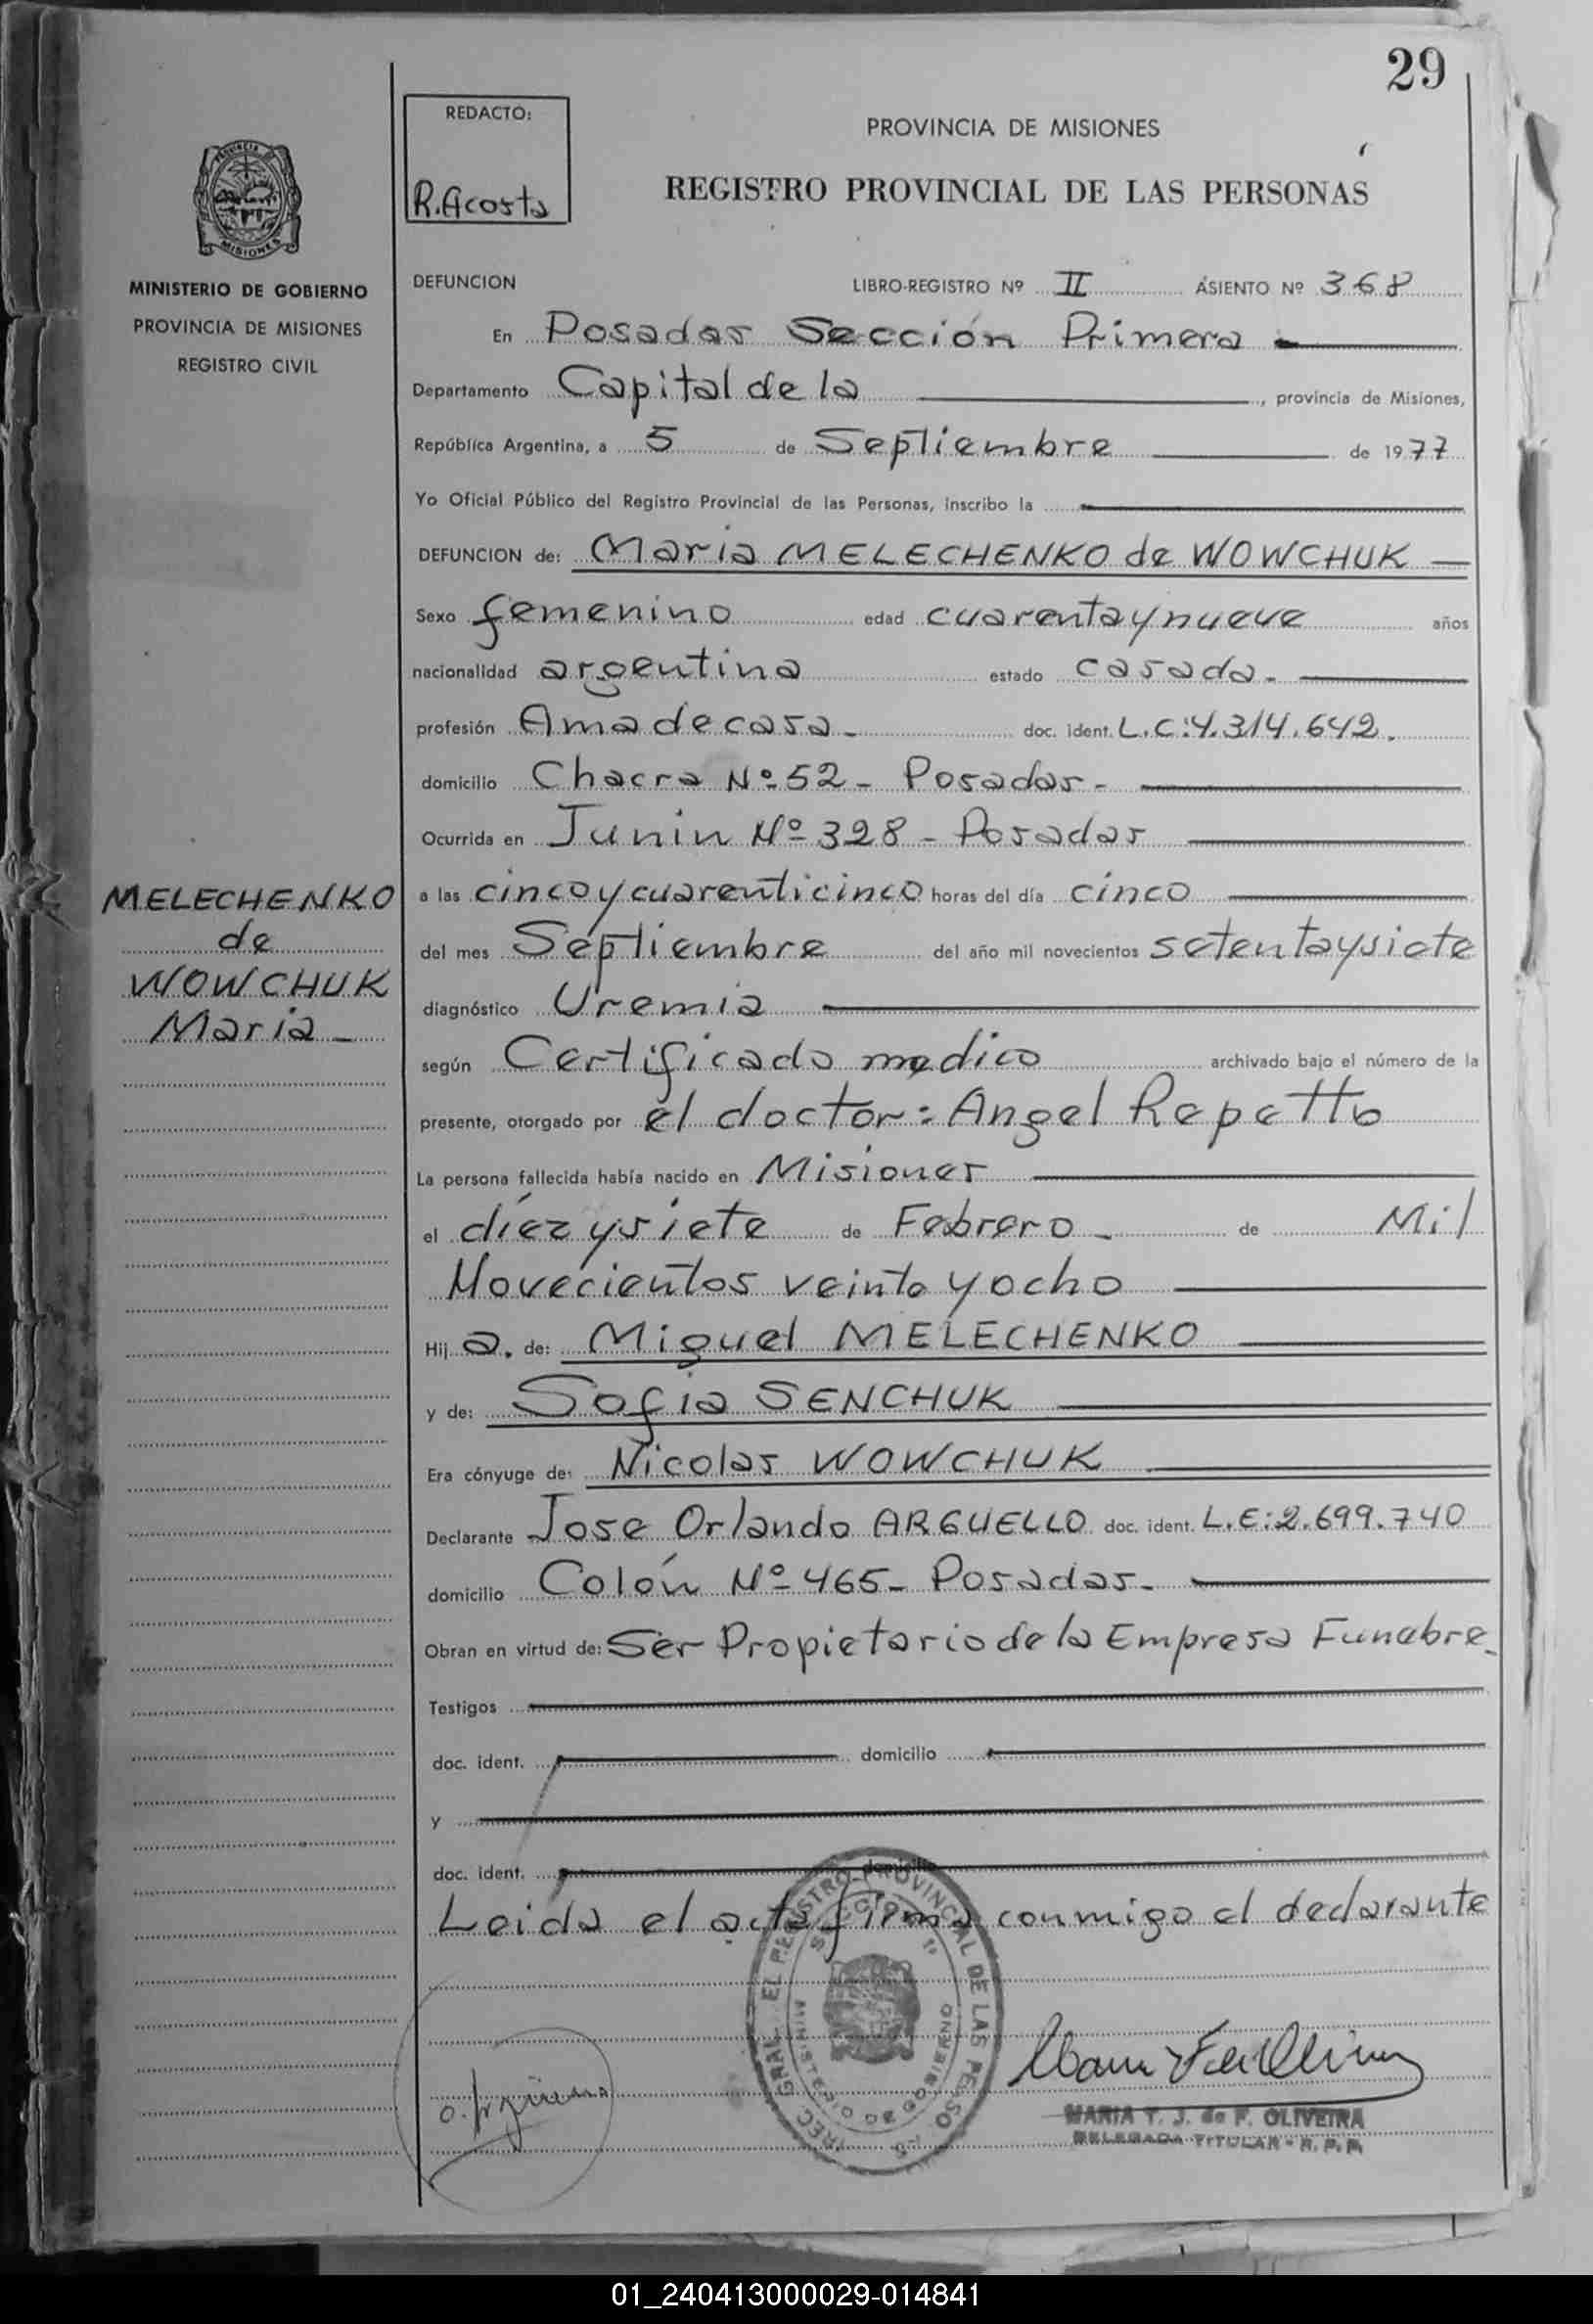 29
REDACTO:
R. Acosta
PROVINCIA DE MISIONES
REGISTRO PROVINCIAL DE LAS PERSONAS
PROVINCIA DE
MISIONES
MINISTERIO DE GOBIERNO
PROVINCIA DE MISIONES
REGISTRO CIVIL
DEFUNCION LIBRO-REGISTRO Nº II ASIENTO Nº 368
En Posadas Sección Primera
Departamento Capital de la, provincia de Misiones,
República Argentina, a 5 de Septiembre de 1977
Yo Oficial Público del Registro Provincial de las Personas, inscribo la
DEFUNCION de: Maria MELECHENKO de WOWCHUK
Sexo femenino edad cuarenta y nueve años
nacionalidad argentina estado casada.
profesión Ama de casa- doc. ident. L.C:4.314.642.
domicilio Chacra Nº 52 - Posadas-
Ocurrida en Junin Nº 328 - Posadas
a las cinco y cuarenticinco horas del día cinco
del mes Septiembre del año mil novecientos setenta y siete
diagnóstico Uremia
según Certificado medico archivado bajo el número de la
presente, otorgado por el doctor: Angel Repetto
La persona fallecida había nacido en Misiones
el díez y siete de Febrero - de Mil
Novecientos veinte y ocho
Hij a. de: Miguel MELECHENKO
y de: Sofia SENCHUK
Era cónyuge de: Nicolas WOWCHUK
Declarante Jose Orlando ARGUELLO doc. ident. L.E:2.699.740
domicilio Colón Nº 465- Posadas.
Obran en virtud de: Ser Propietario de la Empresa Funebre-
Testigos
doc. ident. domicilio
y
doc. ident. domicilio
Leida el acta firma conmigo el declarante
MELECHENKO
de
WOWCHUK
Maria -
DIREC. GRAL. EL REGISTRO PROVINCIAL DE LAS PERSO
SECCION 1º
MINISTERIO DE GOBIERNO
MARIA T. J. de F. OLIVEIRA
DELEGADA TITULAR - R. P. P.
01_240413000029-014841